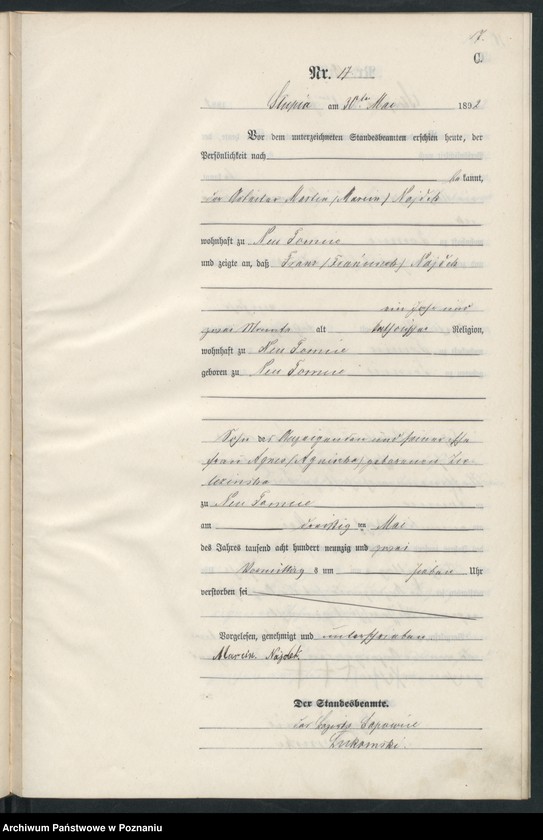 17.
C.
Nr. 17
Słupia am 30ten Mai 1892
Vor dem unterzeichneten Standesbeamten erschien heute, der
Persönlichkeit nach
bekannt,
der Arbeiter Martin (Marcin) Najdek
wohnhaft zu Neu Tomice
und zeigte an, daß Franz (Franciszek) Najdek
ein Jahr und
zwei Monate alt katholischer Religion,
wohnhaft zu Neu Tomice
geboren zu Neu Tomice
Sohn des Anzeigenden und seiner Ehe
frau Agnes (Agnieszka) geborenen
zu Neu Tomice
am dreißig ten Mai
des Jahres tausend acht hundert neunzig und zwei
Vormittag s um sieben Uhr
verstorben sei
Vorgelesen, genehmigt und unterschrieben
Marcin Najdek
Der Standesbeamte.
des Bezirks Sapowice
Łukomski
Archiwum Państwowe w Poznaniu